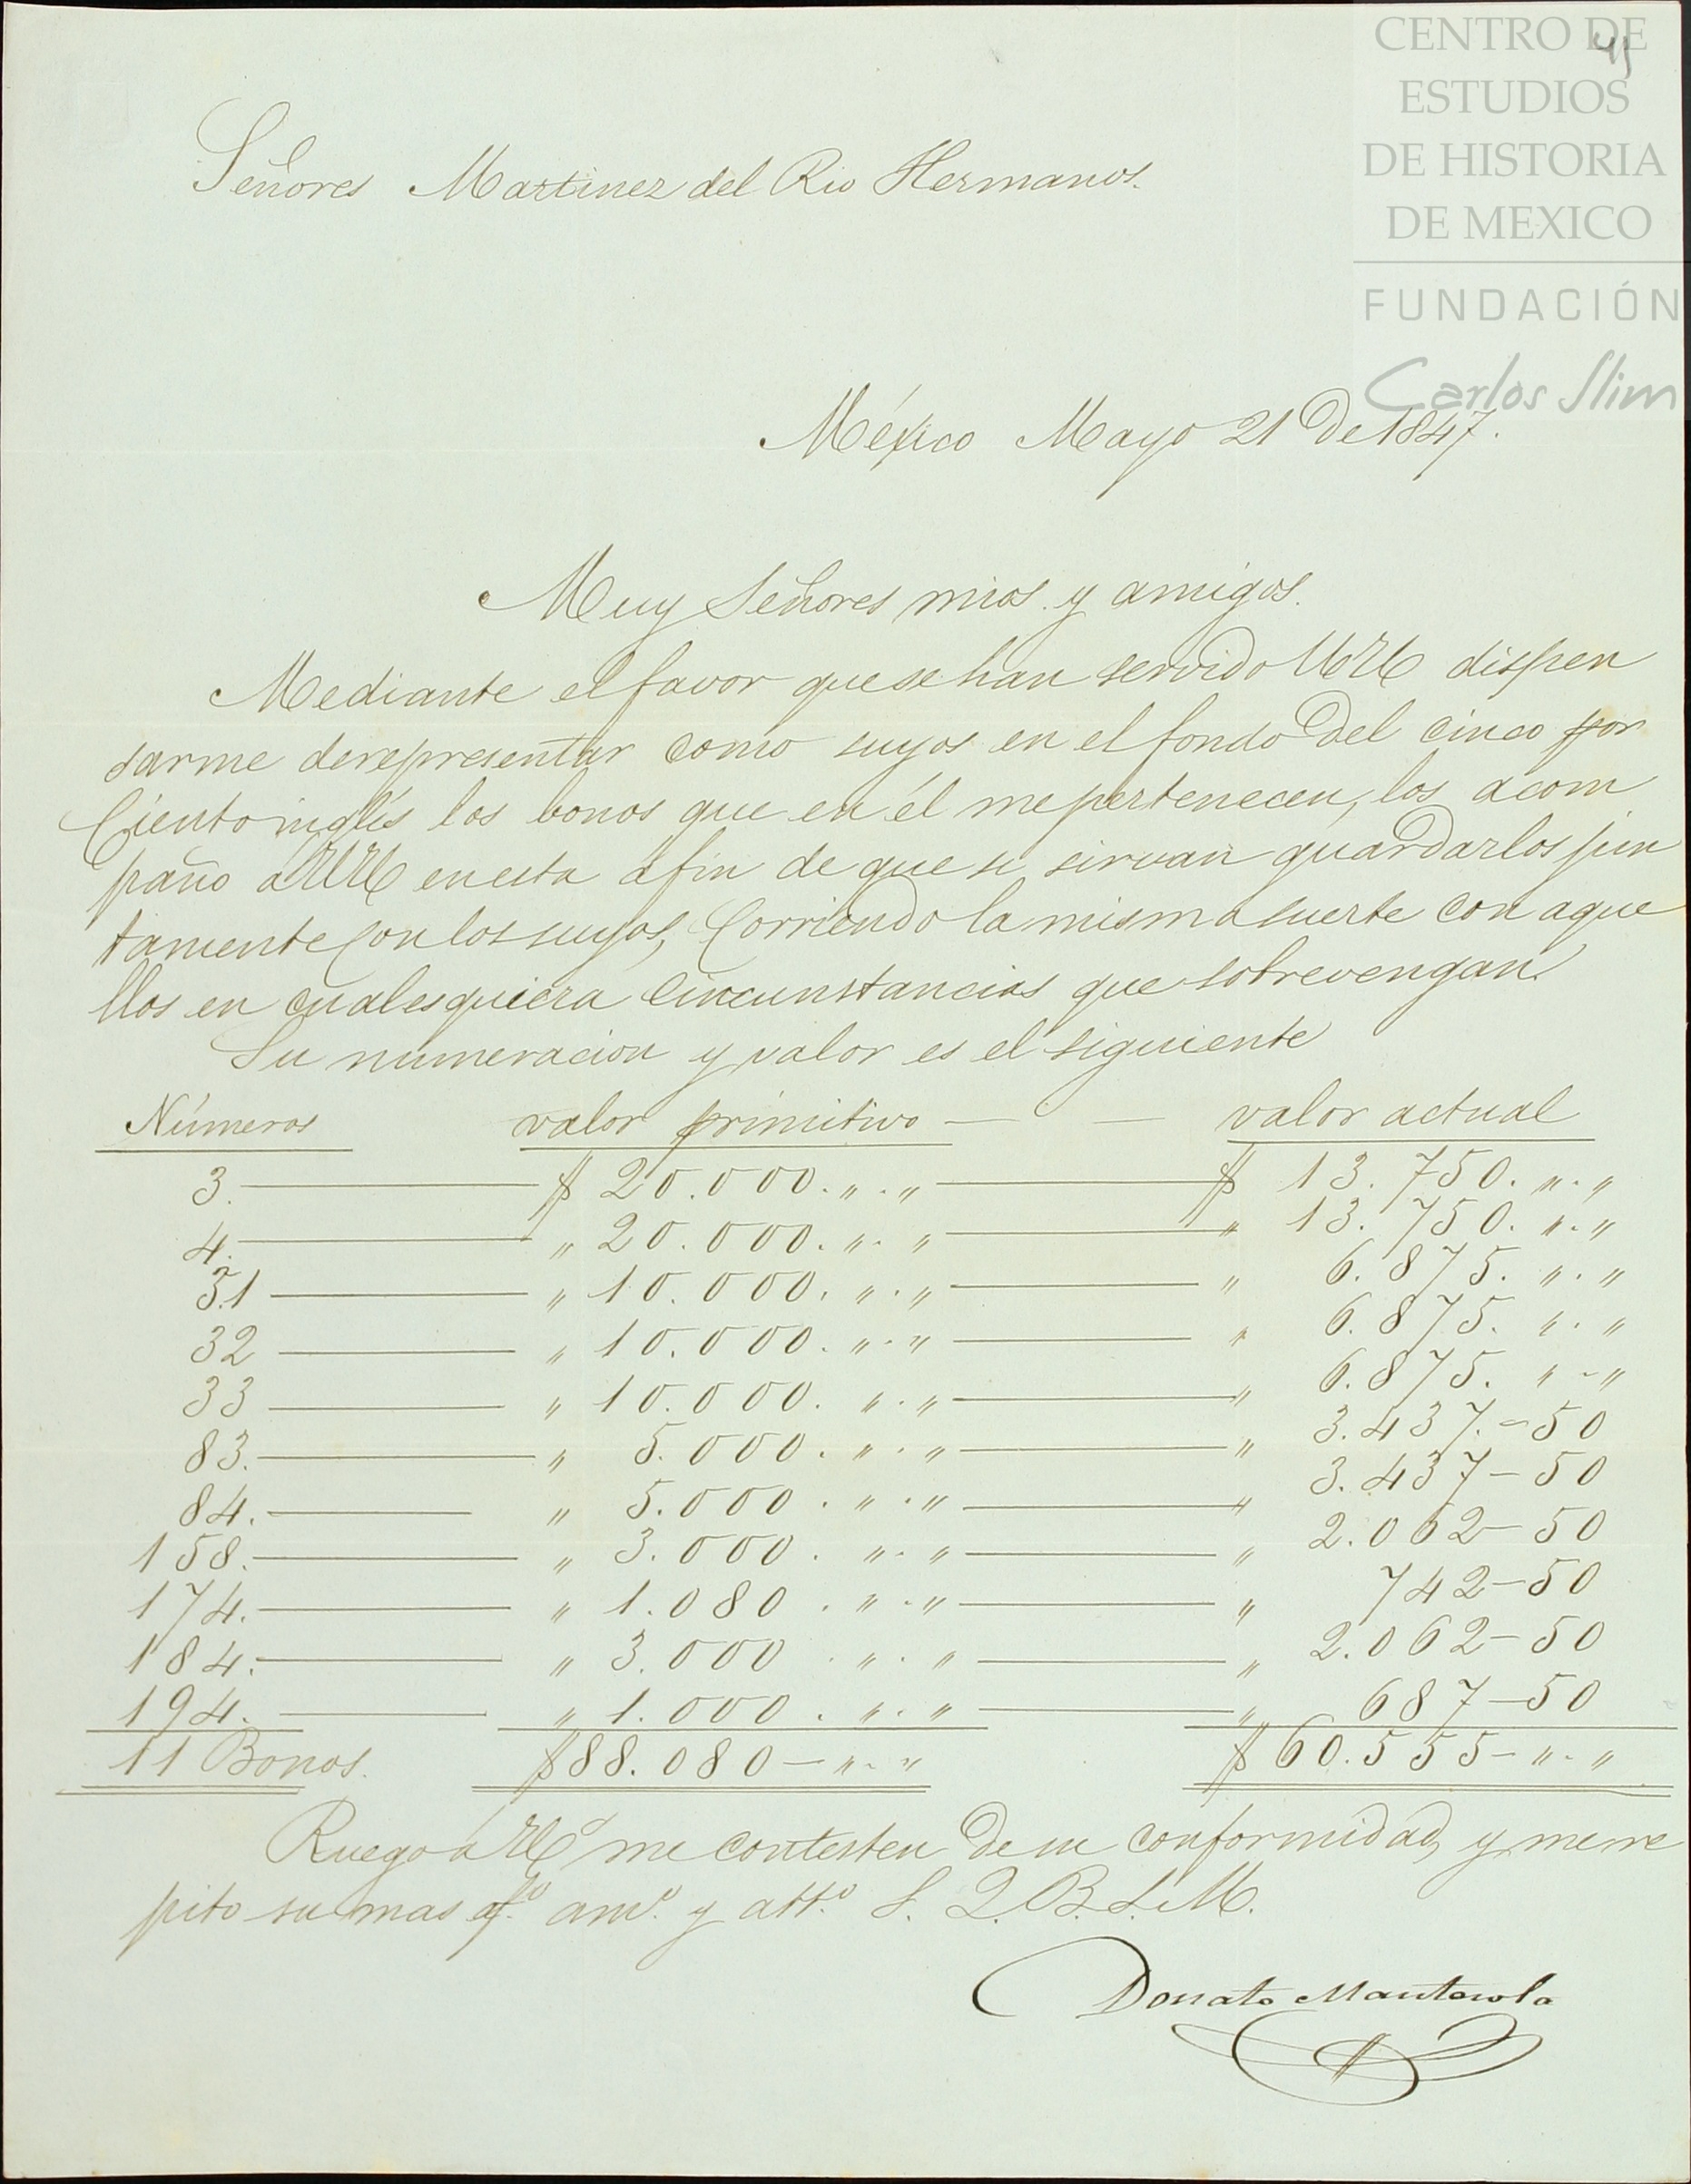 CENTRO DE
ESTUDIOS
DE HISTORIA
DE MEXICO
FUNDACIÓN
Carlos Slim
Señores Martinez del Rio Hermanos.
México Mayo 21 De 1847.
Muy Señores mios y amigos.
Mediante el favor que se han servido dispen
sarme de representar como suyos en el fondo Del cinco por
Ciento inglés los bonos que en él me pertenecen, los acom
paño a en esta a fin de que se sirvan guardarlos jun
tamente con los suyos, Corriendo la misma suerte con aque
llos en cualesquiera circunstancias que sobrevengan.
Su numeracion y valor es el siguiente
Números valor primitivo — — valor actual
3. — $ 20.000. „ . „ — $ 13.750. „ . „
4. — „ 20.000. „ . „ — „ 13.750. „ . „
31 — „ 10.000. „ . „ — „ 6.875. „ . „
32 — „ 10.000. „ . „ — „ 6.875. „ . „
33 — „ 10.000. „ . „ — „ 6.875. „ - „
83. — „ 5.000. „ . „ — „ 3.437. - 50
84. — „ 5.000. „ . „ — „ 3.437 - 50
158. — „ 3.000. „ . „ — „ 2.062 - 50
174. — „ 1.080. „ . „ — „ 742 - 50
184. — „ 3.000. „ . „ — „ 2.062 - 50
194. — „ 1.000. „ . „ — „ 687 - 50
11 Bonos. $ 88.080 - „ . „ $ 60.555 - „ . „
Ruego a me contesten De su conformidad, y me re
pito su mas af.º am.º y att.º S. Q. B. S. M.
Donato Manterola